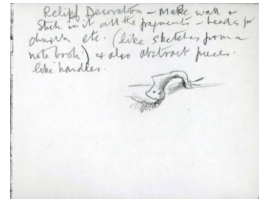 Relief Decoration – Make wall &
Stick in it all the fragments – heads for
church etc. (like sketches from a
note book) & also abstract pieces.
like handles.